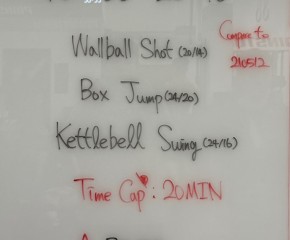 Wallball Shot (20/14)
Compare to
210512
Box Jump (24/20)
Kettlebell Swing (24/16)
Time Cap: 20MIN